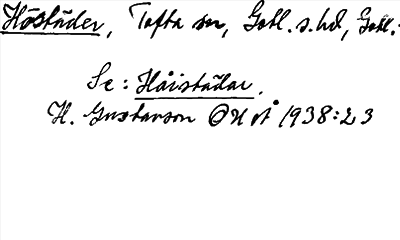 Höstäder, Tofta sn, Gotl. s. hd, Gotl.
Se: Håistädar.
H. Gustavson OUÅ 1938:23